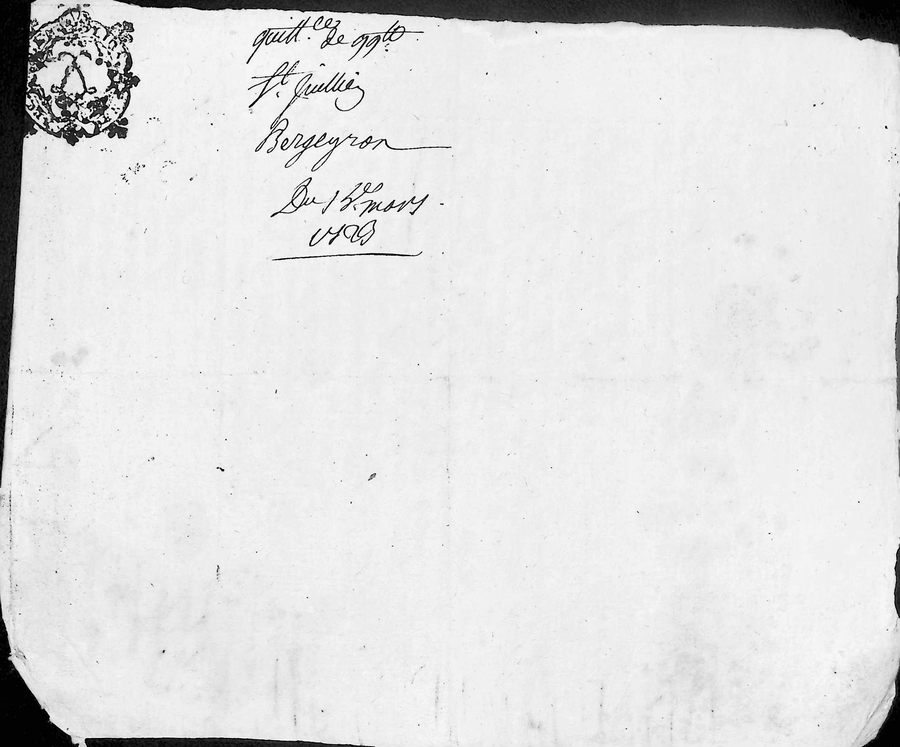 quitt.ce de 99tt
St. Jullien
Bergeyron
Du 1 mars